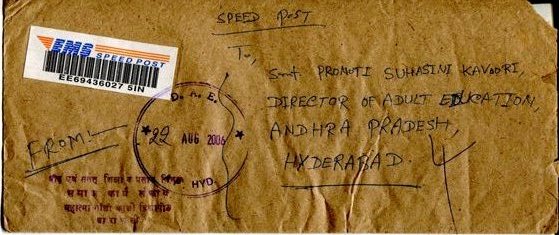 SPEED POST
EMS
SPEED POST
EE69436027 5IN
To,
Smt PROMOTI SUHASINI KAVOORI
DIRECTOR OF ADULT EDUCATION,
ANDHRA PRADESH,
HYDERABAD.
D. A. E.
22 AUG 2006
HYD.
FROM:-
प्रौढ़ एवं सतत शिक्षा व प्रसार विभाग
समाज कार्य संकाय
महात्मा गाँधी काशी विद्यापीठ
वाराणसी